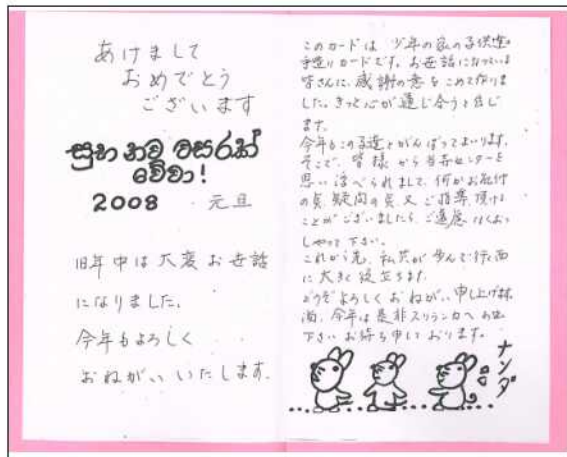 あけまして
おめでとう
ございます
සුභ නව වසරක්
වේවා!
2008 元旦
旧年中は大変お世話
になりました。
今年もよろしく
おねがいいたします。
このカードは 少年の家の子供達の
手造りカードです。お世話になっている
皆さんに、感謝の意をこめて作りま
した。きっと心が通じ合うと信じ
ます。
今年もこの子達とがんばってまいります。
そこで、皆様から当センターを
思い浮べられまして、何かお気付
の点、疑問の点又ご指導頂ける
ことがございましたら、ご遠慮なくおっ
しゃって下さい。
これから先、私共が歩んで行く面
に大きく役立ちます。
どうぞよろしくおねがい申し上げます。
今年は是非スリランカへお出
下さい お待ち申しております。
ナンダ